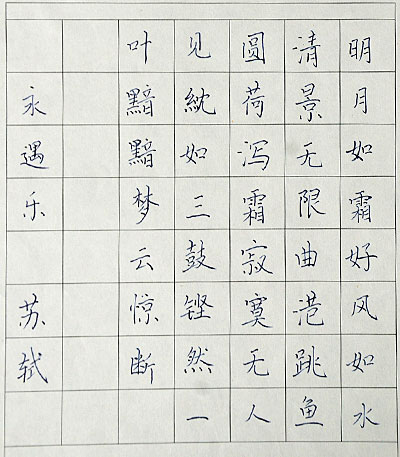 明月如霜好风如水
清景无限曲港跳鱼
圆荷泻霜寂寞无人
见紞如三鼓铿然一
叶黯黯梦云惊断
永遇乐 苏轼